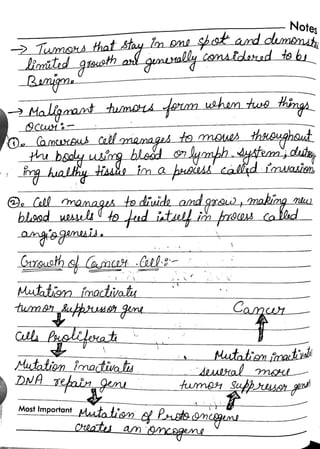 Notes
→ Tumors that stay in one spot and demonstr
limited growth are generally considered to be
Benign.
→ Malignant tumors form when two things
occur:-
①. Camcerous cell manages to moves throughout
the body using blood or lymph. system, destroy
ing healthy tissue in a process called invasion
②. Cell manages to divide and grow, making new
blood vessels to feed itself in process called
angiogenesis.
Growth of Cancer Cell:-
Mutation inactivates
tumor suppressor gene
Cancer
Cells Proliferate
Mutation inactivate
Mutation inactivates
several more
DNA repair gene
tumor suppressor genes
Most Important Mutation of Proto oncogene
creates an oncogene